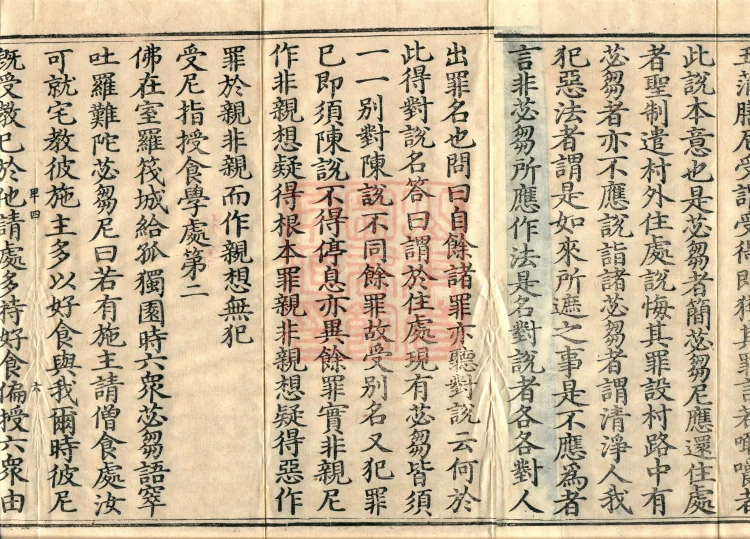 此說本意也是苾芻者簡苾芻尼應還住處
者聖制遣村外住處說悔其罪設村路中有
苾芻者亦不應說詣諸苾芻者謂清淨人我
犯惡法者謂是如來所遮之事是不應為者
言非苾芻所應作法是名對說者各各對人
出罪名也問曰自餘諸罪亦聽對說云何於
此得對說名答曰謂於住處現有苾芻皆須
一一別對陳說不同餘罪故受別名又犯罪
已即須陳說不得停息亦異餘罪實非親尼
作非親想疑得根本罪親非親想疑得惡作
罪於親非親而作親想無犯
受尼指授食學處第二
佛在室羅筏城給孤獨園時六衆苾芻語窣
吐羅難陀苾芻尼曰若有施主請僧食處汝
可就宅教彼施主多以好食與我爾時彼尼
旣受教已於他請處多持好食偏授六衆由